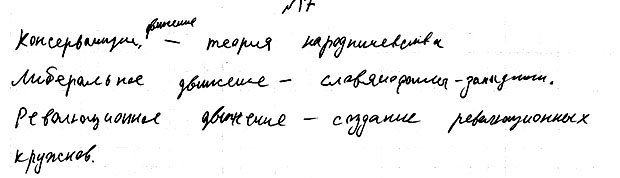 №17
Консервацич. движение – теория народничевства
Либеральное движение – славянофилы-западники.
Революционное движение – создание революционных
кружков.